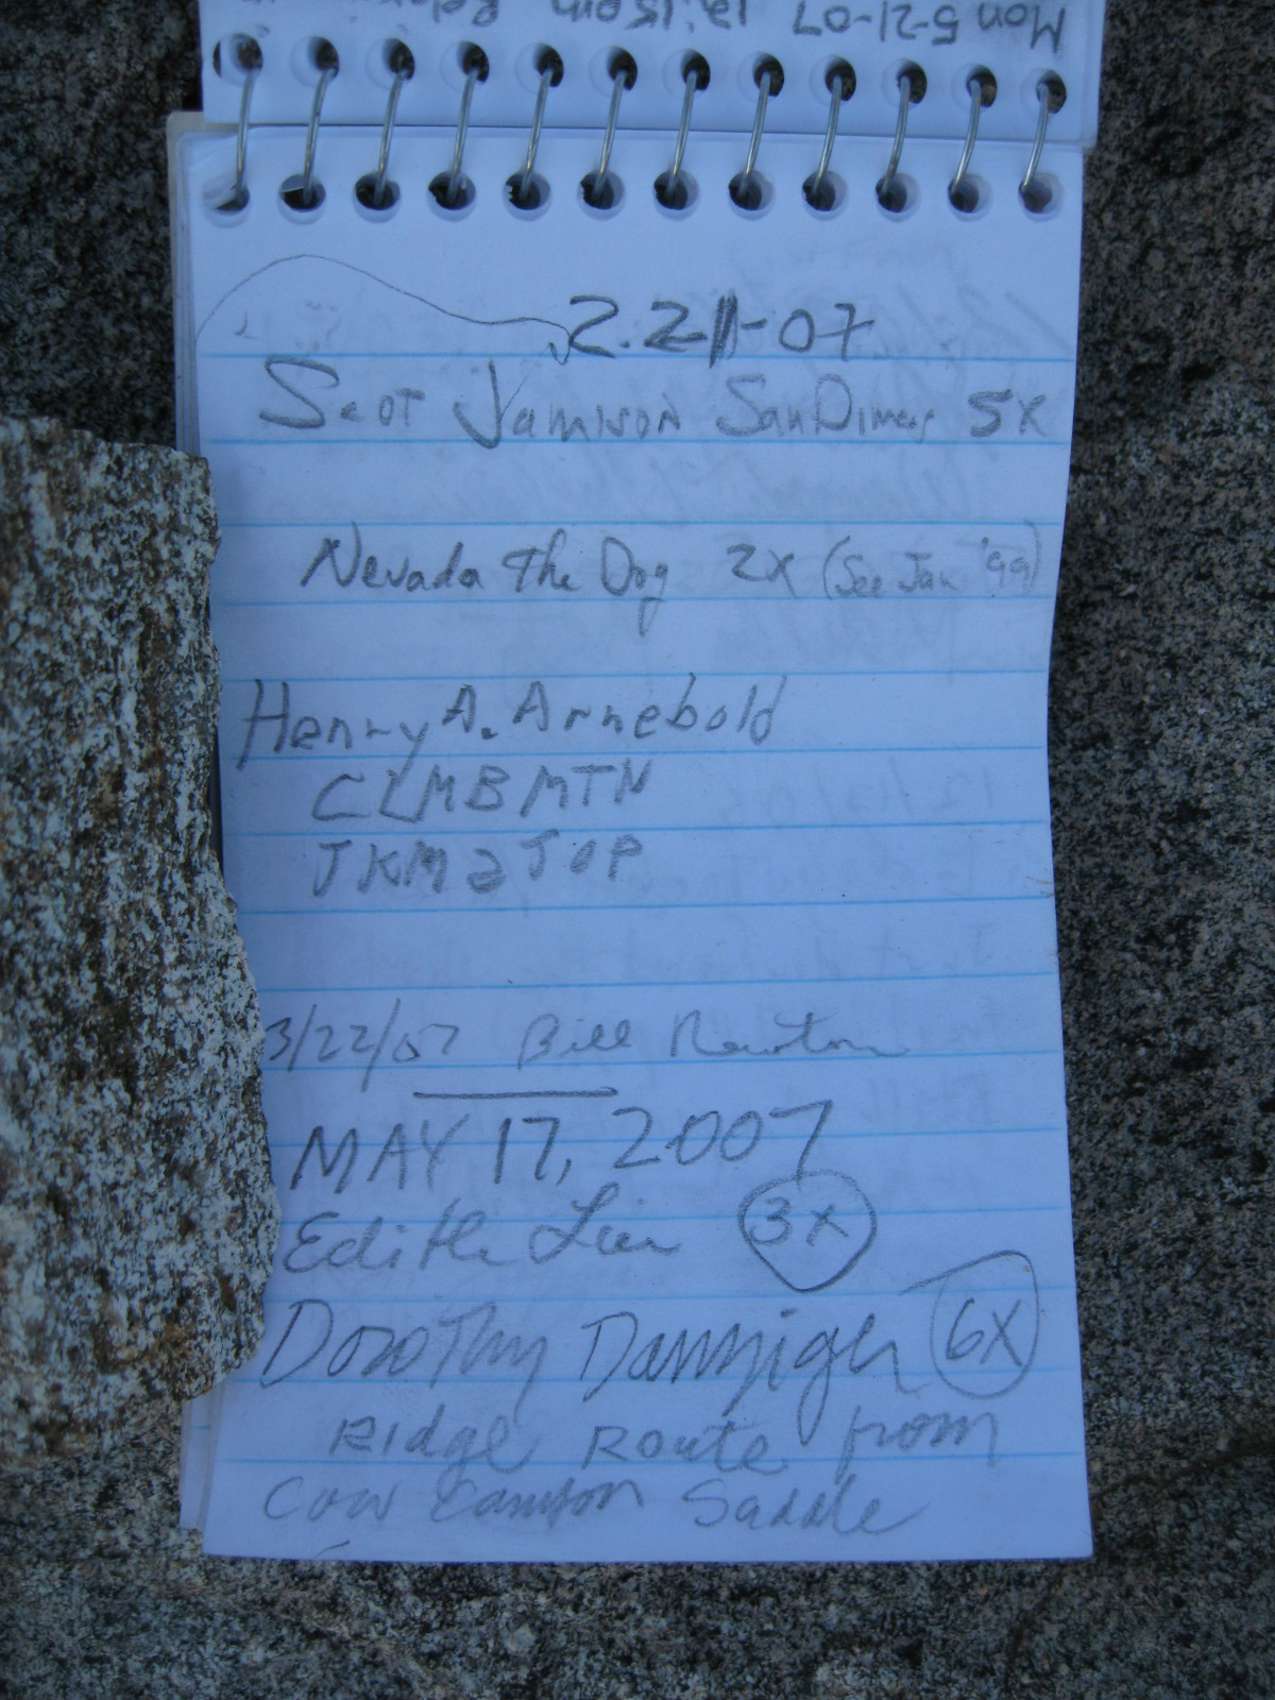 Mon 5-21-07 12:15pm
2.21-07
Scot Jamison San Dimas 5x
Nevada the Dog 2x (See Jan '99)
Henry A. Arnebold
CLMBMTN
JKM2JOP
3/22/07 Bill
MAY 17, 2007
Edith Liu 3x
Dorothy Danziger 6x
Ridge Route from
Cow Canyon Saddle